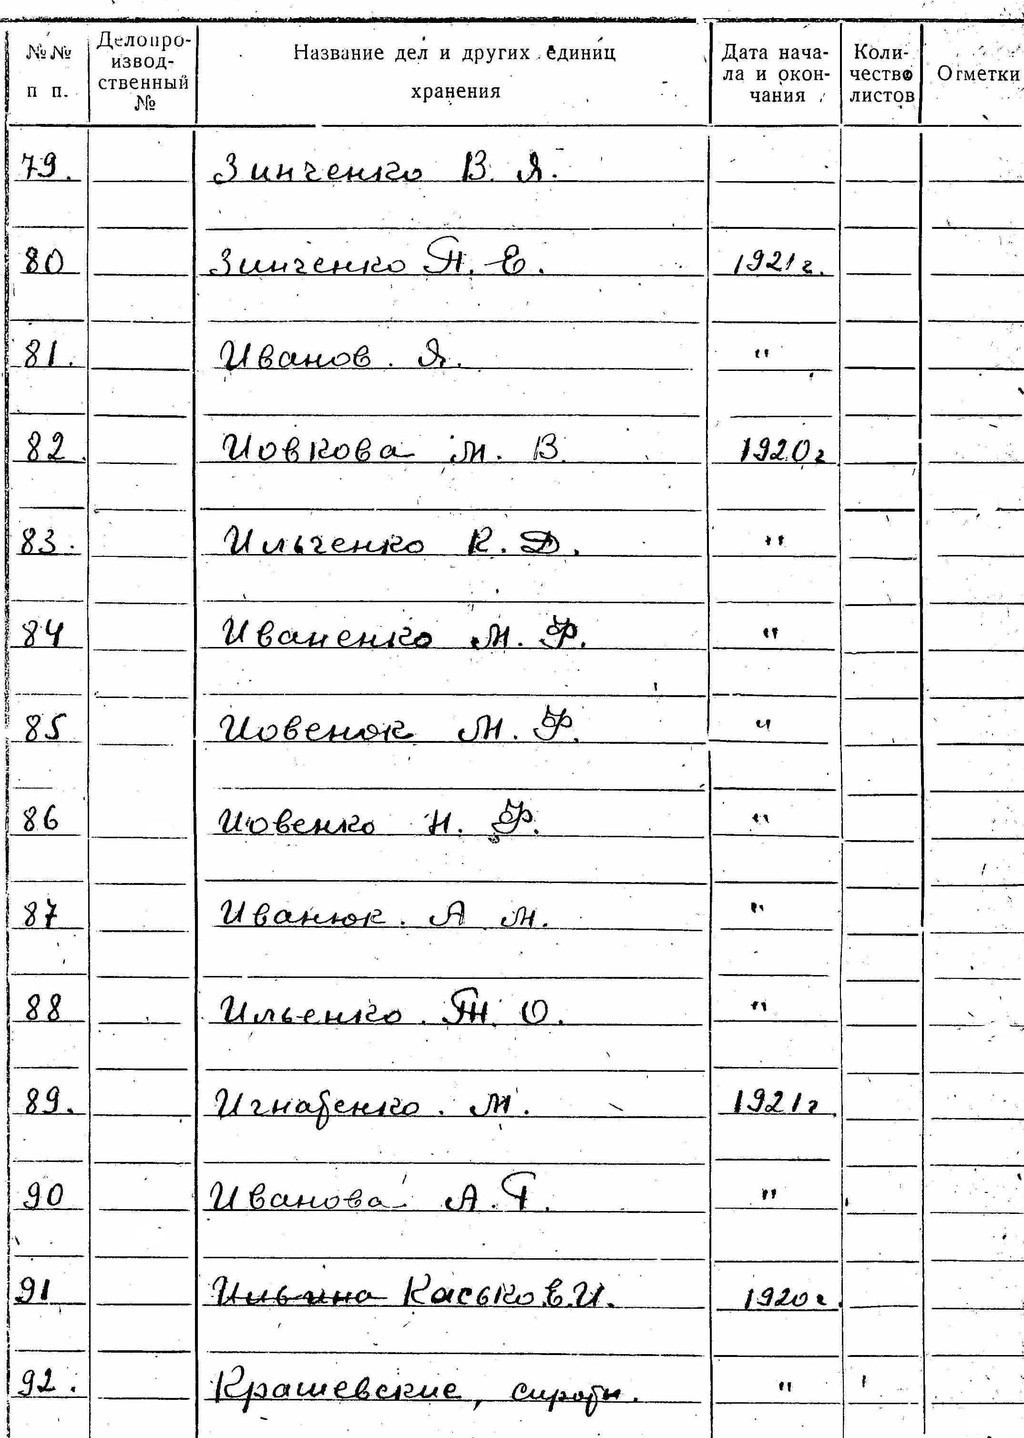 №№ п п.
Делопроизвод-ственный №
Название дел и других единиц хранения
Дата нача-ла и окон-чания
Коли-чество листов
Отметки
79. Зинченко В. Я.
80 Зинченко П. Е. 1921 г.
81. Иванов. Я. "
82. Иовкова М. В. 1920 г
83. Ильченко К. Д. "
84 Иваненко М. Ф. "
85 Иовенюк М. Ф. "
86 Иовенко Н. Ф. "
87 Иванюк. А М. "
88 Ильенко. О. "
89. Игнатенко. М. 1921 г.
90 Иванова А. Г. "
91 Ильина Касько Е.И. 1920 г.
92. Крашевские, сироты. "